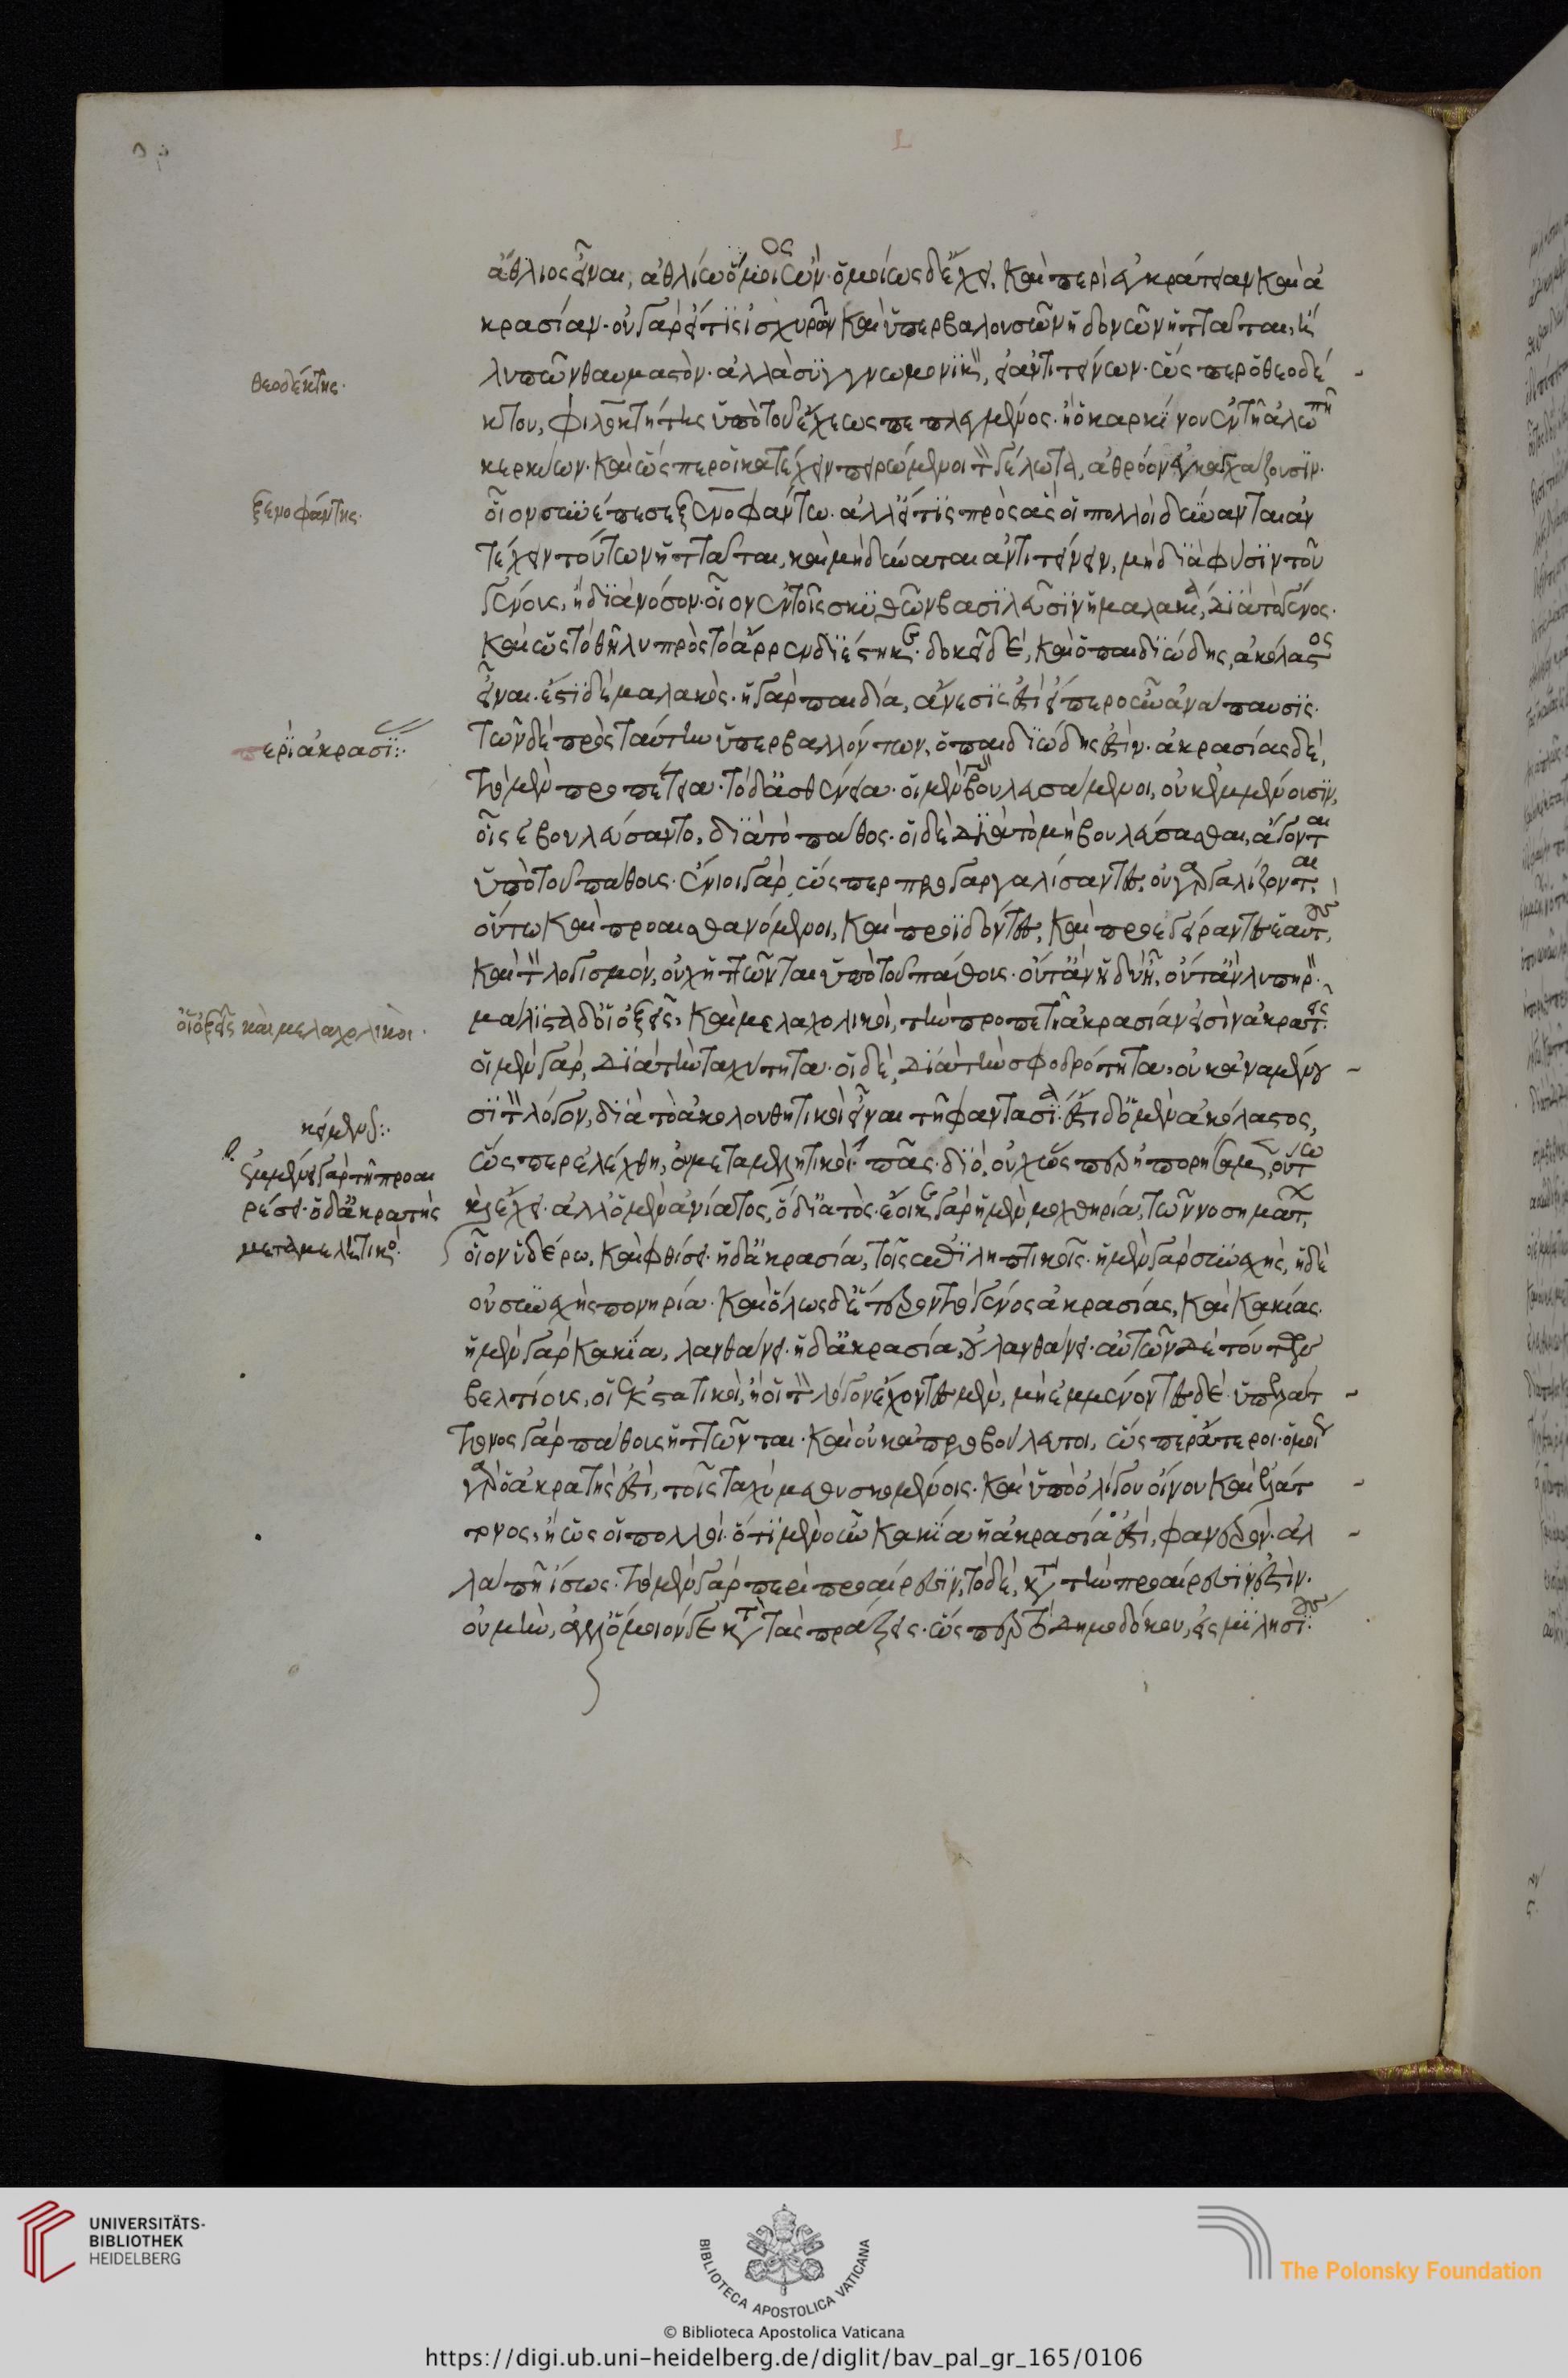 ἄθλιος εἶναι, ἀθλίω ὅμοιος ὤν· ὁμοίως δ' ἔχει, καὶ περὶ ἐγκράτειαν καὶ ἀ
κρασίαν· οὐ γὰρ εἴ τις ἰσχυρῶν καὶ ὑπερβαλουσῶν ἡδονῶν ἡττᾶται, ἢ
λυπῶν θαυμαστόν· ἀλλὰ συγγνωμονικὸν, εἰ ἀντιτείνων· ὥσπερ ὁ θεοδέ
θεοδέκτης·
κτου, φιλοκτήτης ὑπὸ τοῦ ἔχεως πεπληγμένος· ἢ ὁ καρκίνου ἐν τῆ ἀλώπη
κερκύων· καὶ ὥσπερ οἱ κατέχειν πειρώμενοι τὸν γέλωτα, ἀθρόον ἐκκαγχάζουσιν·
οἷον συνέπεσε ξενοφάντω· ἀλλ' εἴ τις πρὸς ἃς οἱ πολλοὶ δύνανται ἀν
ξενοφάντης·
τέχειν τούτων ἡττᾶται, καὶ μὴ δύναται ἀντιτείνειν, μὴ διὰ φύσιν τοῦ
γένους, ἢ διὰ νόσον· οἷον ἐν τοῖς σκυθῶν βασιλεῦσιν ἡ μαλακία, διὰ τὸ γένος·
καὶ ὡς τὸ θῆλυ πρὸς τὸ ἄρρεν διέστηκεν· δοκεῖ δὲ, καὶ ὁ παιδιώδης, ἀκόλαστος
εἶναι· ἔστι δὲ μαλακός· ἡ γὰρ παιδία, ἄνεσίς ἐστι εἴπερ οὖν ἀνάπαυσις·
τῶν δὲ πρὸς ταύτην ὑπερβαλλόντων, ὁ παιδιώδης ἐστίν· ἀκρασίας δὲ,
περὶ ἀκρασί:·
τὸ μὲν προπέτεια· τὸ δ' ἀσθένεια· οἱ μὲν βουλευσάμενοι, οὐκ ἐμμένουσιν,
οἷς ἐβουλεύσαντο, διὰ τὸ πάθος· οἱ δὲ διὰ τὸ μὴ βουλεύσασθαι, ἄγονται
ὑπὸ τοῦ πάθους· ἔνιοι γὰρ, ὥσπερ προγαργαλίσαντες, οὐ γαργαλίζονται·
οὕτω καὶ προαισθανόμενοι, καὶ προϊδόντες, καὶ προεγείραντες ἑαυτοὺς,
καὶ τὸν λογισμὸν, οὐχ ἡττῶνται ὑπὸ τοῦ πάθους· οὔτ' ἂν ἡδὺ ἦ, οὔτ' ἂν λυπηρόν·
μάλιστα δ' οἱ ὀξεῖς, καὶ μελαχολικοὶ, τὴν προπετῆ ἀκρασίαν εἰσὶν ἀκρατεῖς·
οἱ ὀξεῖς καὶ μελαχολικοι·
οἱ μὲν γὰρ, διὰ τὴν ταχυτῆτα· οἱ δὲ, διὰ τὴν σφοδρότητα, οὐκ ἀναμένου
σι τὸν λόγον, διὰ τὸ ἀκολουθητικοὶ εἶναι τῆ φαντασία· ἔστι δ' ὁ μὲν ἀκόλαστος,
κείμενον:·
ὥσπερ ἐλέχθη, οὐ μεταμελητικὸς·
ἐμμένει γὰρ τῆ προαι
ρέσει· ὁ δ' ἀκρατὴς
μεταμελητικὸς·
πᾶς· διὸ, οὐχ ὥσπερ ἠπορήσαμεν, οὕτω
καὶ ἔχει· ἀλλ' ὁ μὲν ἀνίατος, ὁ δ' ἰατός· ἔοικεν γὰρ ἡ μὲν μοχθηρία, τῶν νοσημάτων,
οἷον ὑδέρω, καὶ φθίσει· ἡ δ' ἀκρασία, τοῖς ἐπιληπτικοῖς· ἡ μὲν γὰρ συνεχὴς, ἡ δὲ
οὐ συνεχὴς πονηρία· καὶ ὅλως δ' ἕτερον τὸ γένος ἀκρασίας, καὶ κακίας·
ἡ μὲν γὰρ κακία, λανθάνει· ἡ δ' ἀκρασία, οὐ λανθάνει· αὐτῶν δὲ τούτων
βελτίους, οἱ ἐκστατικοὶ, ἢ οἱ τὸν λόγον ἔχοντες μὲν, μὴ ἐμμένοντες δέ· ὑπ' ἐλάτ
τονος γὰρ πάθους ἡττῶνται· καὶ οὐκ ἀπροβούλευτοι, ὥσπερ ἅτεροι· ὅμοιος
γὰρ ὁ ἀκρατής ἐστι, τοῖς ταχὺ μεθυσκομένοις· καὶ ὑπὸ ὀλίγου οἴνου καὶ ἐλάτ
τονος, ἢ ὡς οἱ πολλοί· ὅτι μὲν οὖν κακία ἡ ἀκρασία οὐκ ἐστι, φανερόν· ἀλ
λά πη ἴσως· τὸ μὲν γὰρ περὶ προαίρεσιν, τὸ δὲ, κατὰ τὴν προαίρεσίν ἐστίν·
οὐ μὴν, ἀλλ' ὅμοιόν γε κατὰ τὰς πράξεις· ὥσπερ τὸ δημοδόκου, εἰς μιλησίους·
UNIVERSITÄTS-
BIBLIOTHEK
HEIDELBERG
BIBLIOTECA APOSTOLICA VATICANA
The Polonsky Foundation
© Biblioteca Apostolica Vaticana
https://digi.ub.uni-heidelberg.de/diglit/bav_pal_gr_165/0106